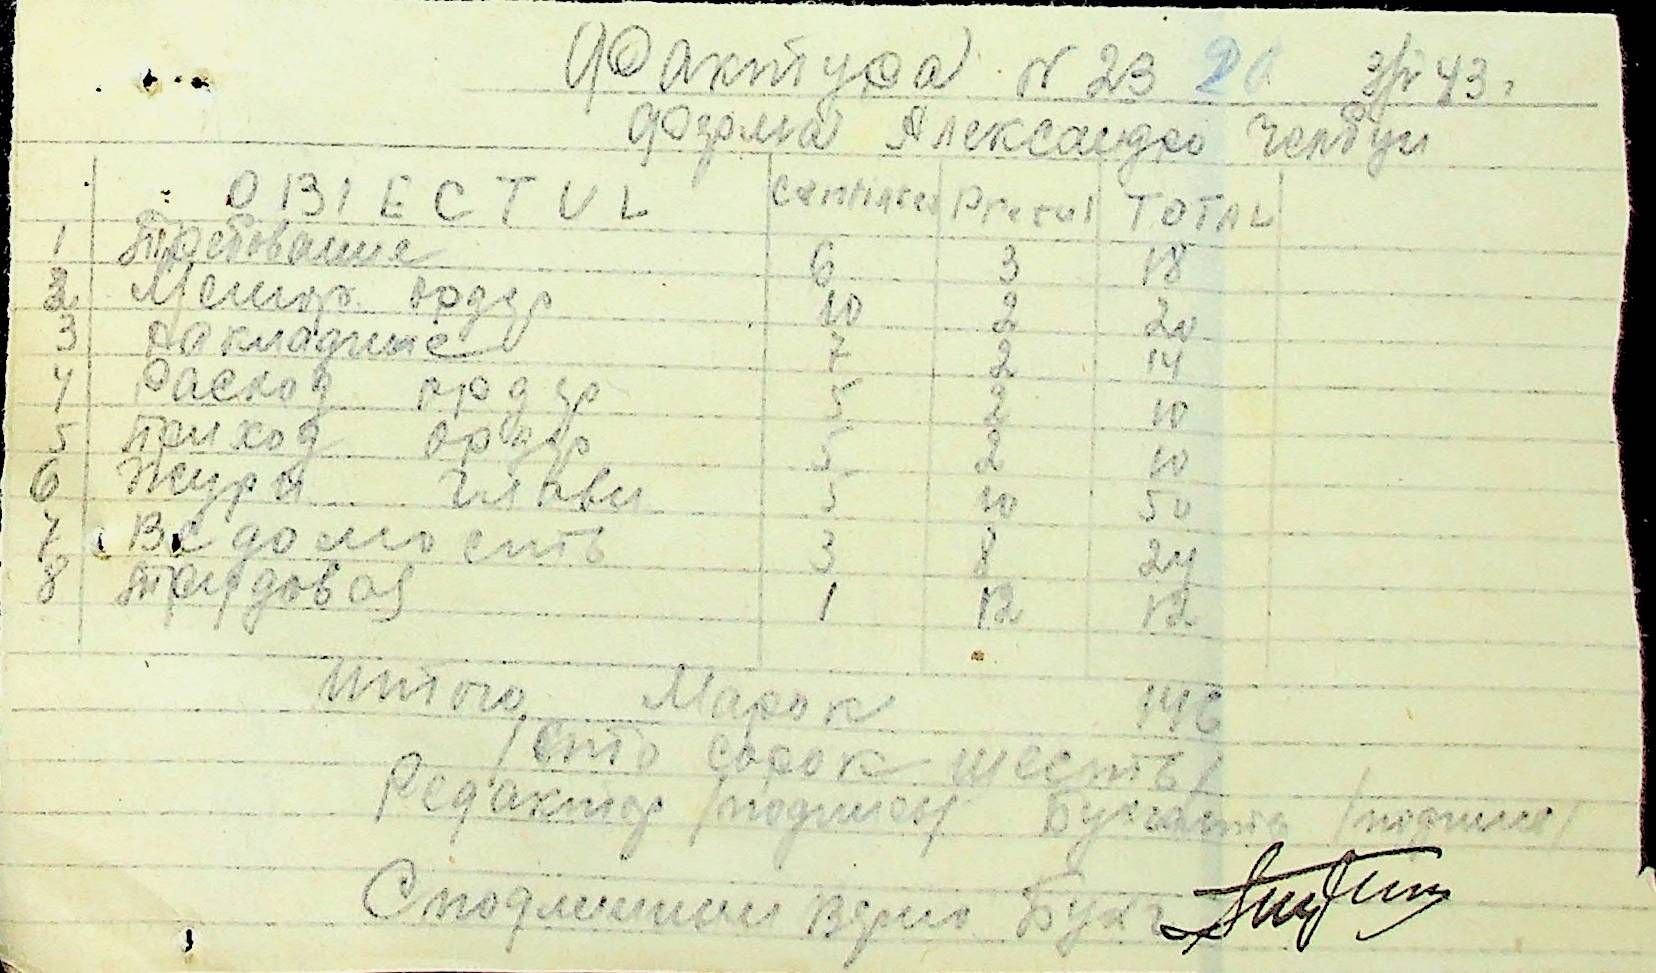 Фактура N 23 3/IV 43 г.
Ферма Александро
OBIECTUL Cantitatea Pretul TOTAL
1 Требование 6 3 18
2 Мемор. ордер 10 2 20
3 Накладные 7 2 14
4 Расход ордер 5 2 10
5 Приход ордер 5 2 10
6 Журн главн 5 10 50
7 Ведомость 3 8 24
8 Трудовая 1 12 12
Итого Марок 146
/сто сорок шесть/
Редактор /подпись/ Бухгалтер /подпись/
С подлинным верно Бухг